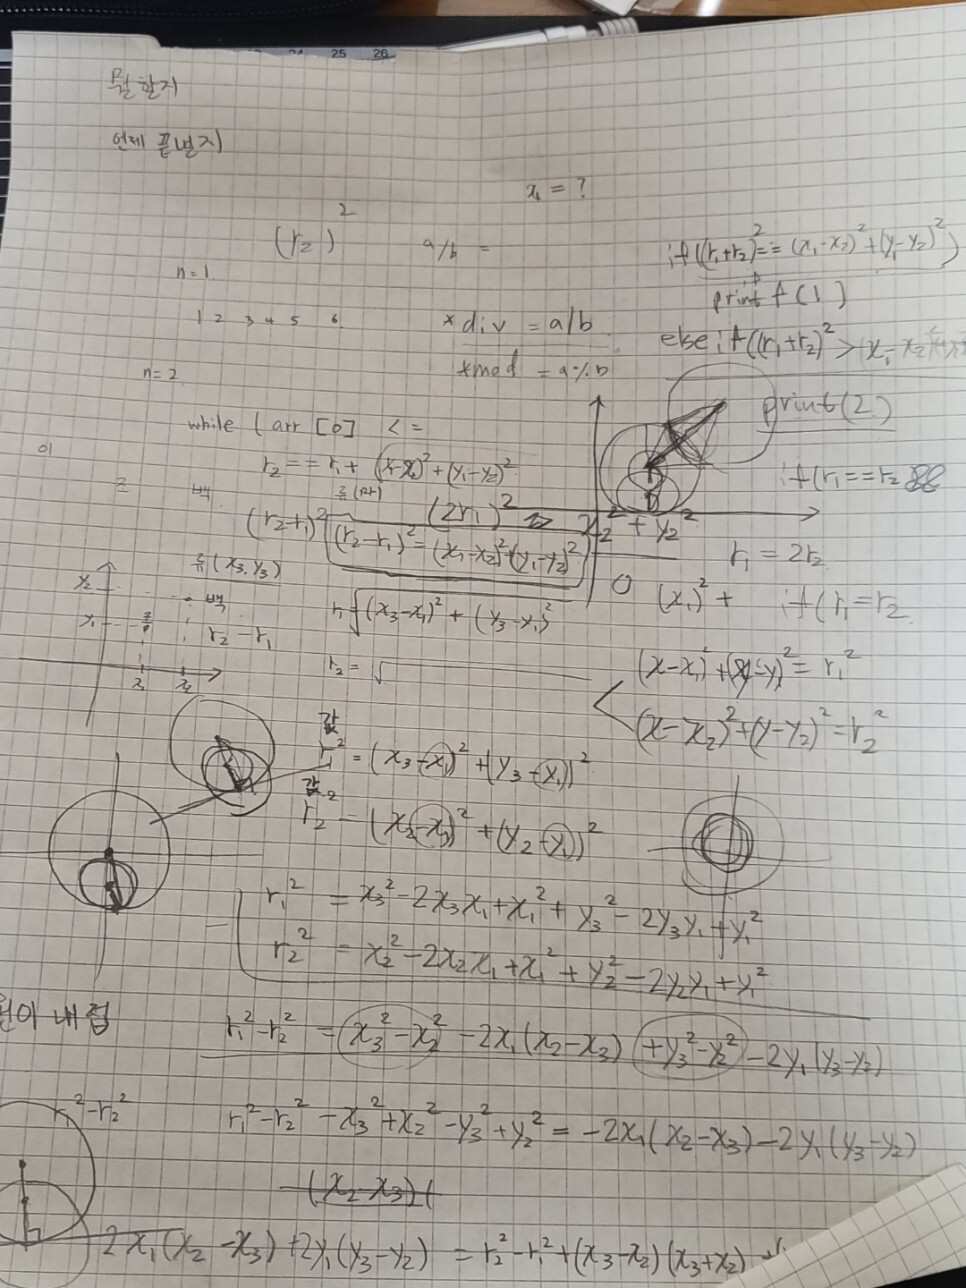 25 26
뭘 할지
언제 끝낼지
x₁ = ?
(r₂)²
a/b =
if((r₁+r₂)²==(x₁-x₂)²+(y₁-y₂)²)
n=1
printf(1)
1 2 3 4 5 6
*div = a/b
else if((r₁+r₂)²>
*mod = a%b
n=2
print(2)
while (arr[b] <=
01
r₂==r₁+
if(r₁==r₂ &&
류(마)
백
(r₂+r₁)²
(2r₁)²
x₂²+y₂²
(r₂-r₁)²=(x₁-x₂)²+(y₁-y₂)²
r₁=2r₂
류(x₃,y₃)
(x₁)²+
if(r₁=r₂
x₂
백
r₁√(x₃-x₁)²+(y₃-y₁)²
x₁
r₂-r₁
r₂=√
(x-x₁)²+(y-y₁)²=r₁²
(x-x₂)²+(y-y₂)²=r₂²
r₁²=(x₃-x₁)²+(y₃-y₁)²
r₂²=(x₂-x₁)²+(y₂-y₁)²
r₁²=x₃²-2x₃x₁+x₁²+y₃²-2y₃y₁+y₁²
r₂²=x₂²-2x₂x₁+x₁²+y₂²-2y₂y₁+y₁²
원이 내접
r₁²-r₂²=x₃²-x₂²-2x₁(x₂-x₃)+y₃²-y₂²-2y₁(y₃-y₂)
r₁²-r₂²
r₁²-r₂²-x₃²+x₂²-y₃²+y₂²=-2x₁(x₂-x₃)-2y₁(y₃-y₂)
-(x₂-x₃)(
2x₁(x₂-x₃)+2y₁(y₃-y₂)=r₂²-r₁²+(x₃-x₂)(x₃+x₂)